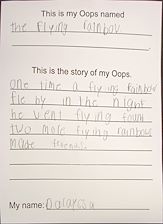 This is my Oops named
the flying rainbow
This is the story of my Oops.
one time a flying rainbow
fle by in the night
he went flying fount
two more flying rainbows
made friends
My name: